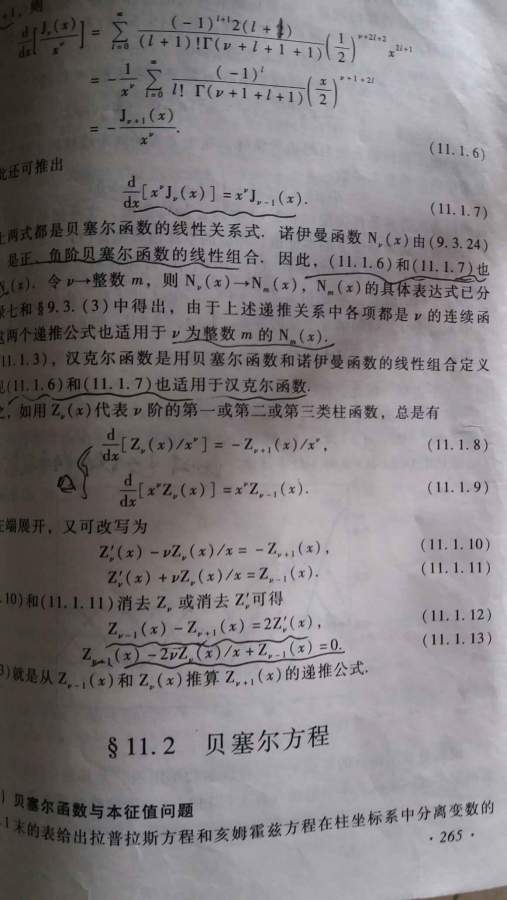 则
d/dx[J_ν(x)/x^ν] = ∑_{l=0}^{∞} (-1)^{l+1}2(l+1)/((l+1)!Γ(ν+l+1+1)) (1/2)^{ν+2l+2} x^{2l+1}
= -1/x^ν ∑_{l=0}^{∞} (-1)^l/(l! Γ(ν+1+l+1)) (x/2)^{ν+1+2l}
= -J_{ν+1}(x)/x^ν. (11.1.6)
此还可推出
d/dx[x^νJ_ν(x)]=x^νJ_{ν-1}(x). (11.1.7)
上两式都是贝塞尔函数的线性关系式. 诺伊曼函数 N_ν(x)由(9.3.24)
是正、负阶贝塞尔函数的线性组合. 因此, (11.1.6)和(11.1.7)也
N_ν(x). 令 ν→整数 m, 则 N_ν(x)→N_m(x), N_m(x)的具体表达式已分
录七和§9.3.(3)中得出, 由于上述递推关系中各项都是 ν 的连续函
这两个递推公式也适用于 ν 为整数 m 的 N_m(x).
(11.1.3), 汉克尔函数是用贝塞尔函数和诺伊曼函数的线性组合定义
见(11.1.6)和(11.1.7)也适用于汉克尔函数.
之, 如用 Z_ν(x)代表 ν 阶的第一或第二或第三类柱函数, 总是有
d/dx[Z_ν(x)/x^ν] = -Z_{ν+1}(x)/x^ν, (11.1.8)
d/dx[x^νZ_ν(x)]=x^νZ_{ν-1}(x). (11.1.9)
左端展开, 又可改写为
Z′_ν(x)-νZ_ν(x)/x=-Z_{ν+1}(x), (11.1.10)
Z′_ν(x)+νZ_ν(x)/x=Z_{ν-1}(x). (11.1.11)
.10)和(11.1.11)消去 Z_ν 或消去 Z′_ν可得
Z_{ν-1}(x)-Z_{ν+1}(x)=2Z′_ν(x), (11.1.12)
Z_{ν+1}(x)-2νZ_ν(x)/x+Z_{ν-1}(x)=0. (11.1.13)
3)就是从 Z_{ν-1}(x)和 Z_ν(x)推算 Z_{ν+1}(x)的递推公式.
§11.2 贝塞尔方程
) 贝塞尔函数与本征值问题
.1末的表给出拉普拉斯方程和亥姆霍兹方程在柱坐标系中分离变数的
·265·